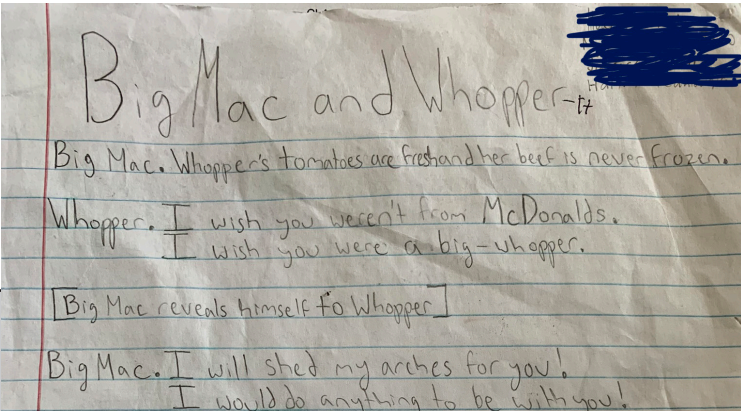 Big Mac and Whopper-tt
Big Mac. Whopper's tomatoes are fresh and her beef is never frozen.
Whopper. I wish you weren't from McDonalds.
I wish you were a big-whopper.
[Big Mac reveals himself to Whopper]
Big Mac. I will shed my arches for you!
I would do anything to be with you!